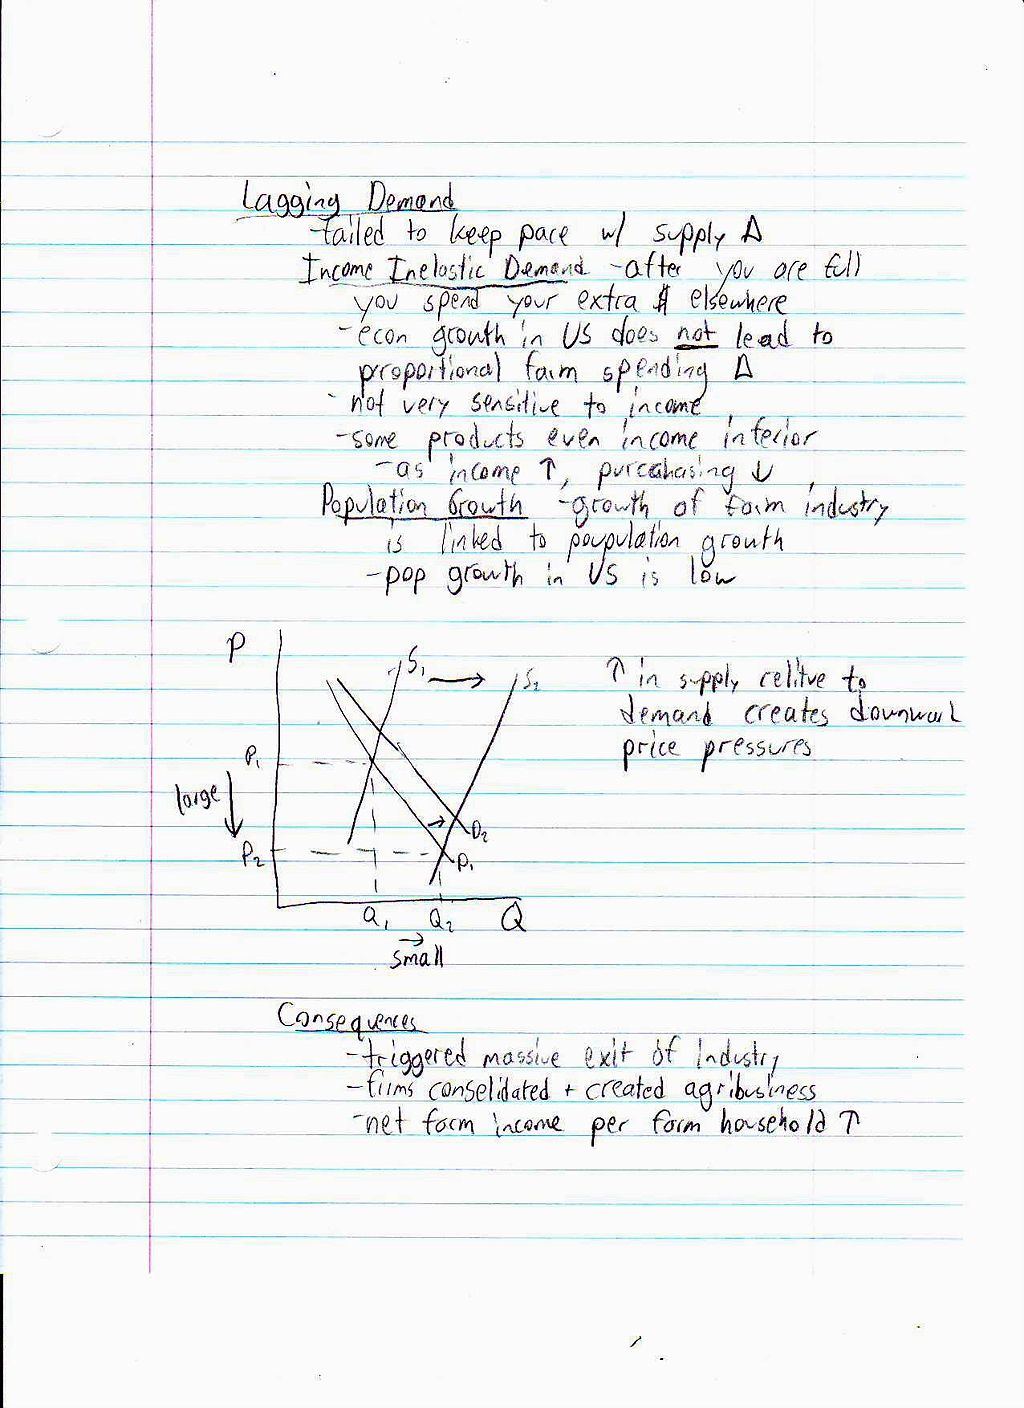 Lagging Demand
-failed to keep pace w/ supply Δ
Income Inelastic Demand -after you are full
you spend your extra $ elsewhere
-econ growth in US does not lead to
proportional farm spending Δ
- not very sensitive to income
-some products even income inferior
-as income ↑, purcahasing ↓
Population Growth -growth of farm industry
is linked to poupulation growth
-pop growth in US is low
P
S₁ → S₂
↑ in supply relitve to
demand creates downward
price pressures
P₁
large ↓
P₂
D₂
D₁
Q₁ Q₂ Q
→
small
Consequences
-triggered massive exit of industry
-firms conselidated + created agribusiness
-net farm income per farm household ↑